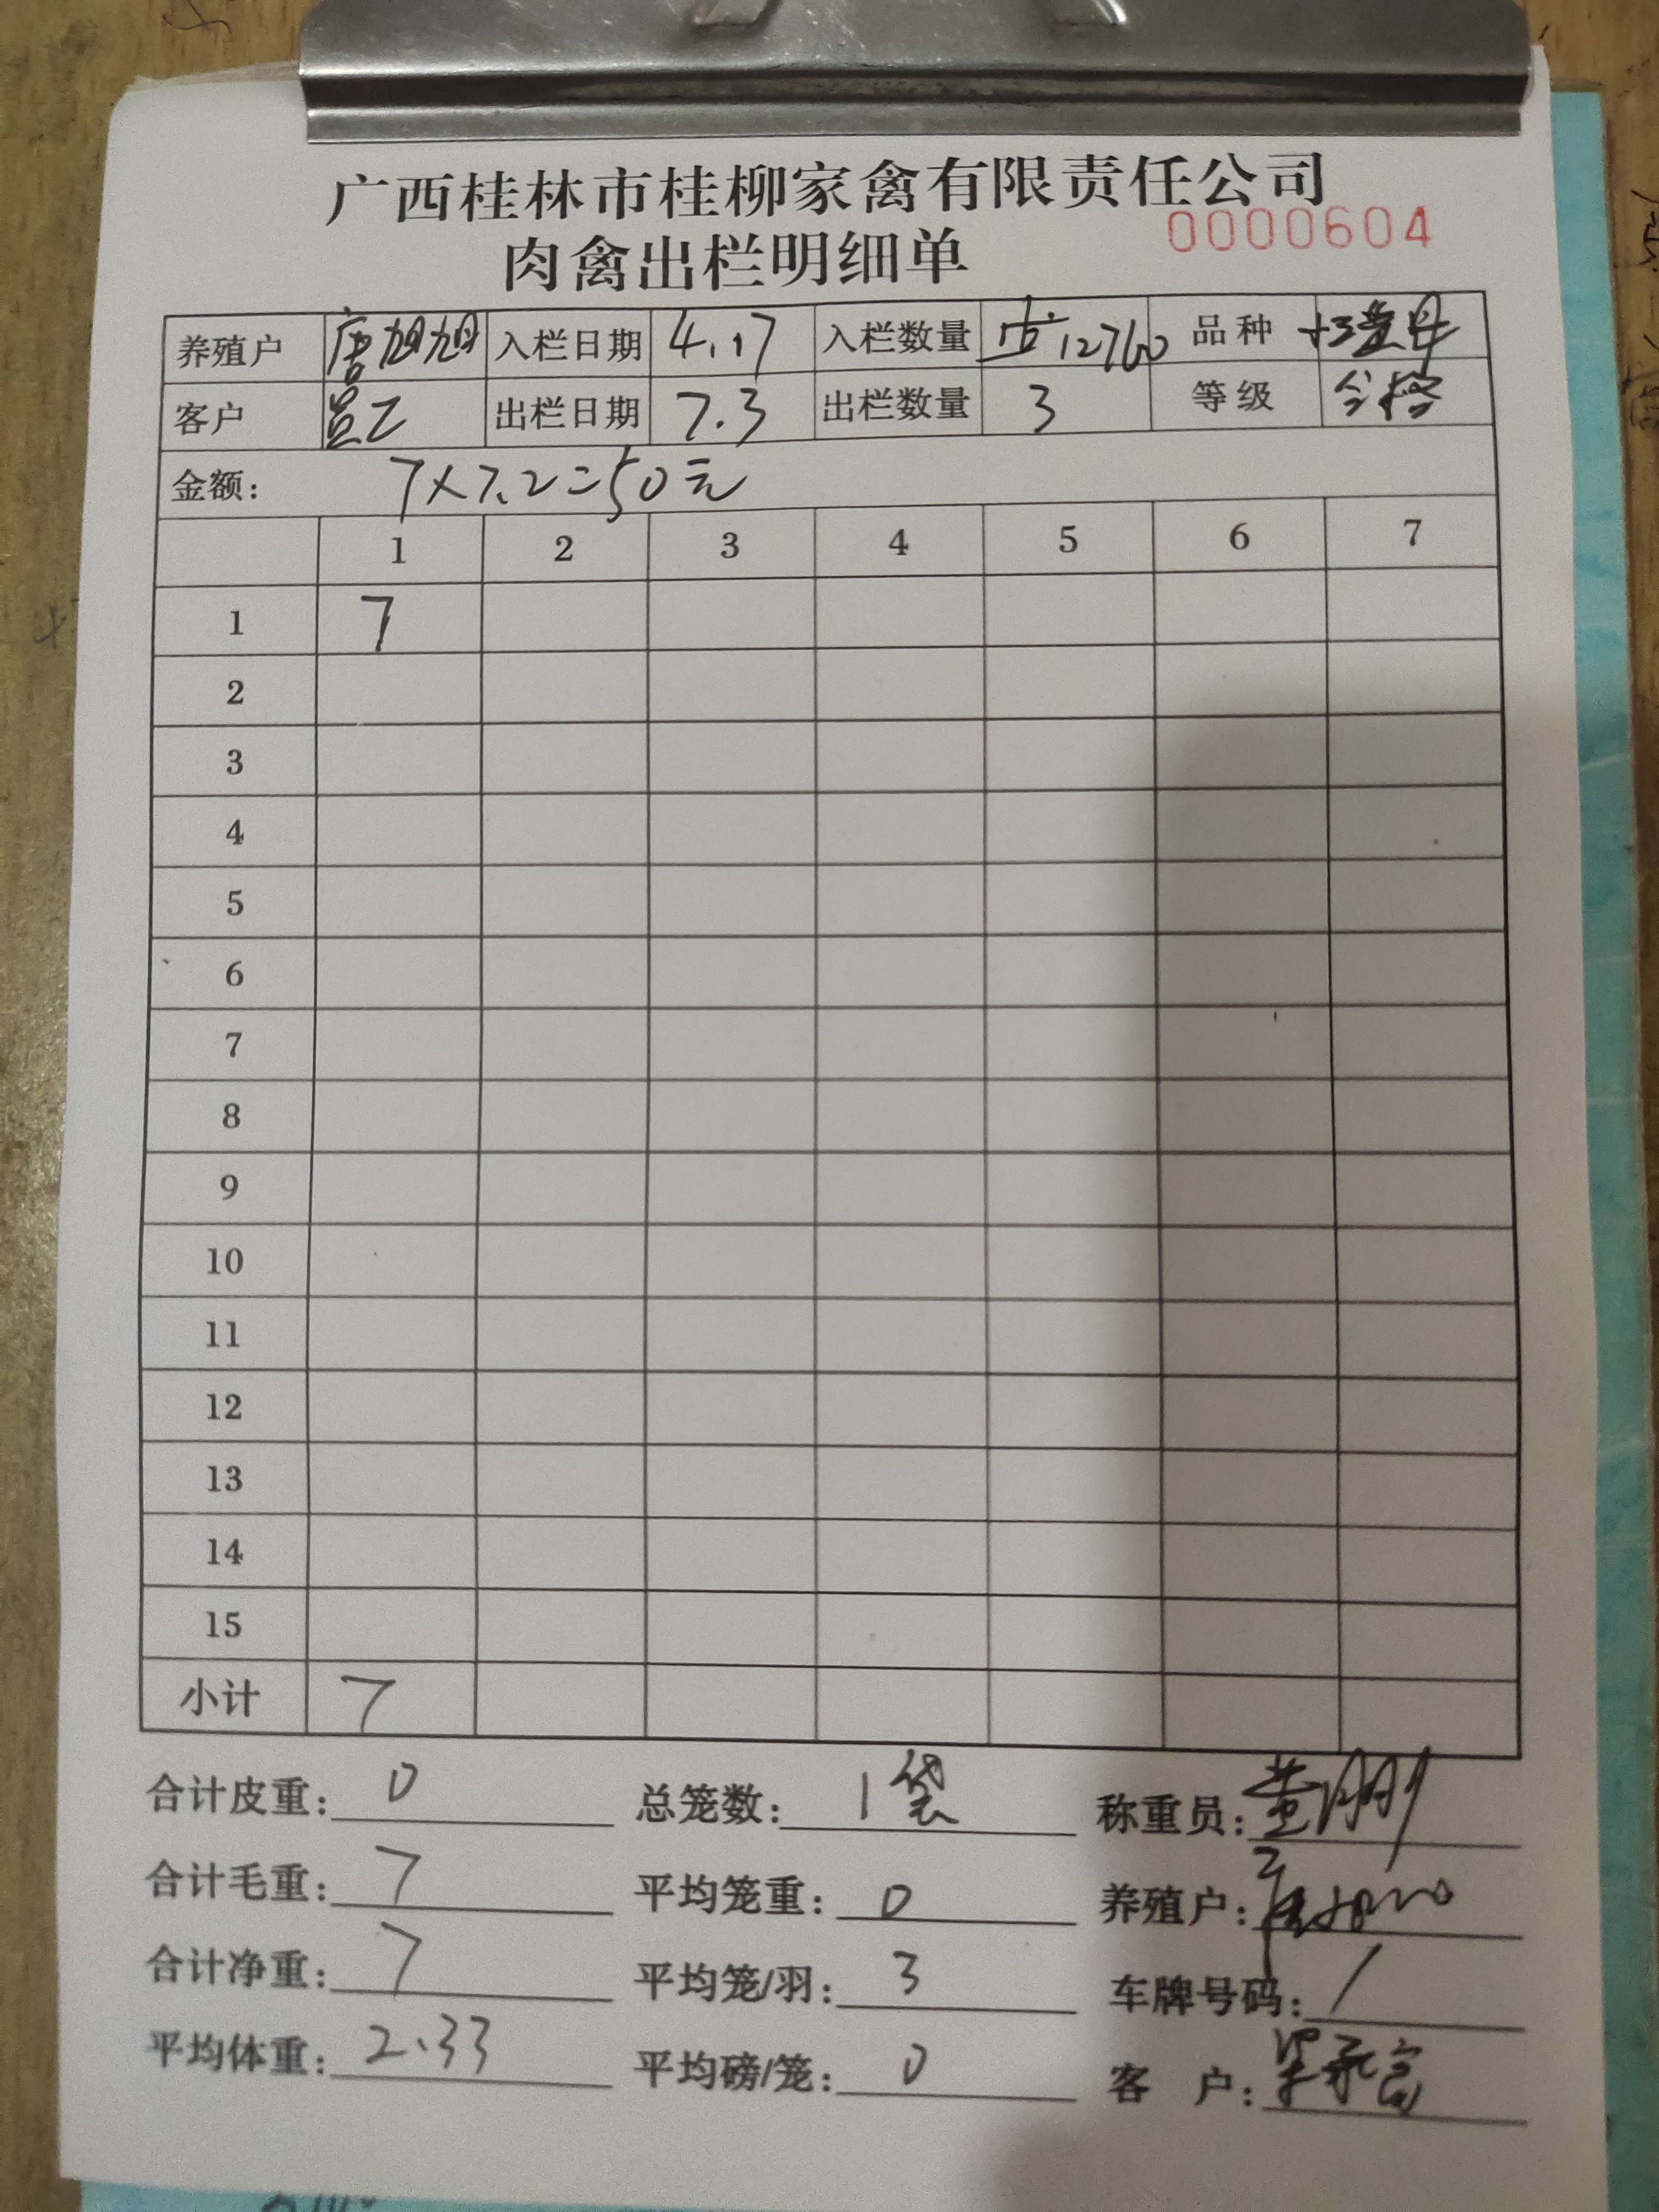 广西桂林市桂柳家禽有限责任公司
0000604
肉禽出栏明细单
养殖户 唐旭旭 入栏日期 4.17 入栏数量 12760 品种
客户 员乙 出栏日期 7.3 出栏数量 3 等级 合格
金额: 7×7.2=50元
1 2 3 4 5 6 7
1 7
2
3
4
5
6
7
8
9
10
11
12
13
14
15
小计 7
合计皮重: 0 总笼数: 1袋 称重员: 黄刚
合计毛重: 7 平均笼重: 0 养殖户:
合计净重: 7 平均笼/羽: 3 车牌号码: /
平均体重: 2.33 平均磅/笼: 0 客 户: